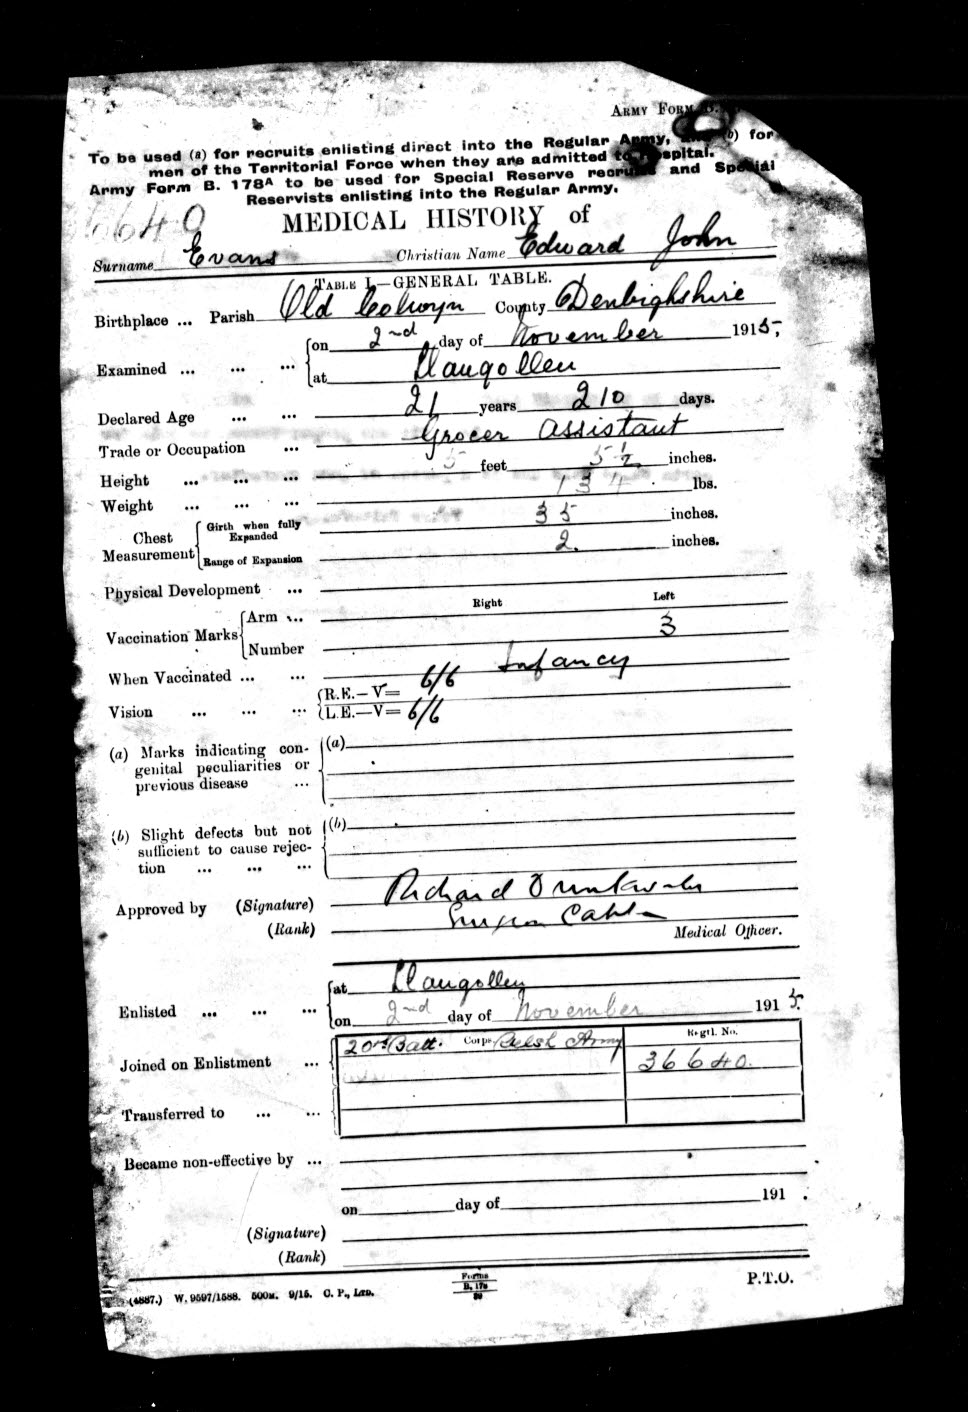 ARMY FORM B.
To be used (a) for recruits enlisting direct into the Regular Army, (b) for
men of the Territorial Force when they are admitted to hospital.
Army Form B. 178A to be used for Special Reserve recruits and Special
Reservists enlisting into the Regular Army.
6640
MEDICAL HISTORY of
Surname Evans Christian Name Edward John
TABLE I.—GENERAL TABLE.
Birthplace ... Parish Old Colwyn County Denbighshire
Examined ... ... ... on 2nd day of November 1915,
at Llangollen
Declared Age ... ... 21 years 210 days.
Trade or Occupation ... Grocer Assistant
Height ... ... ... 5 feet 5 1/2 inches.
Weight ... ... ... 134 lbs.
Chest Measurement Girth when fully Expanded 35 inches.
Range of Expansion 2. inches.
Physical Development ...
Right Left
Vaccination Marks Arm ...
Number 3
When Vaccinated ... ... Infancy
Vision ... ... ... R.E.—V= 6/6
L.E.—V= 6/6
(a) Marks indicating con- (a)
genital peculiarities or
previous disease ...
(b) Slight defects but not (b)
sufficient to cause rejec-
tion ... ... ...
Approved by (Signature) Richard
(Rank)
Medical Officer.
Enlisted ... ... ... at Llangollen
on 2nd day of November 1915.
Joined on Enlistment ... 20th Batt. Corps Welsh Army Regtl. No.
36640.
Transferred to ... ...
Became non-effective by ...
on day of 191 .
(Signature)
(Rank)
P.T.O.
(4887.) W. 9597/1588. 500M. 9/15. C. P., LTD.
Forms
B. 178